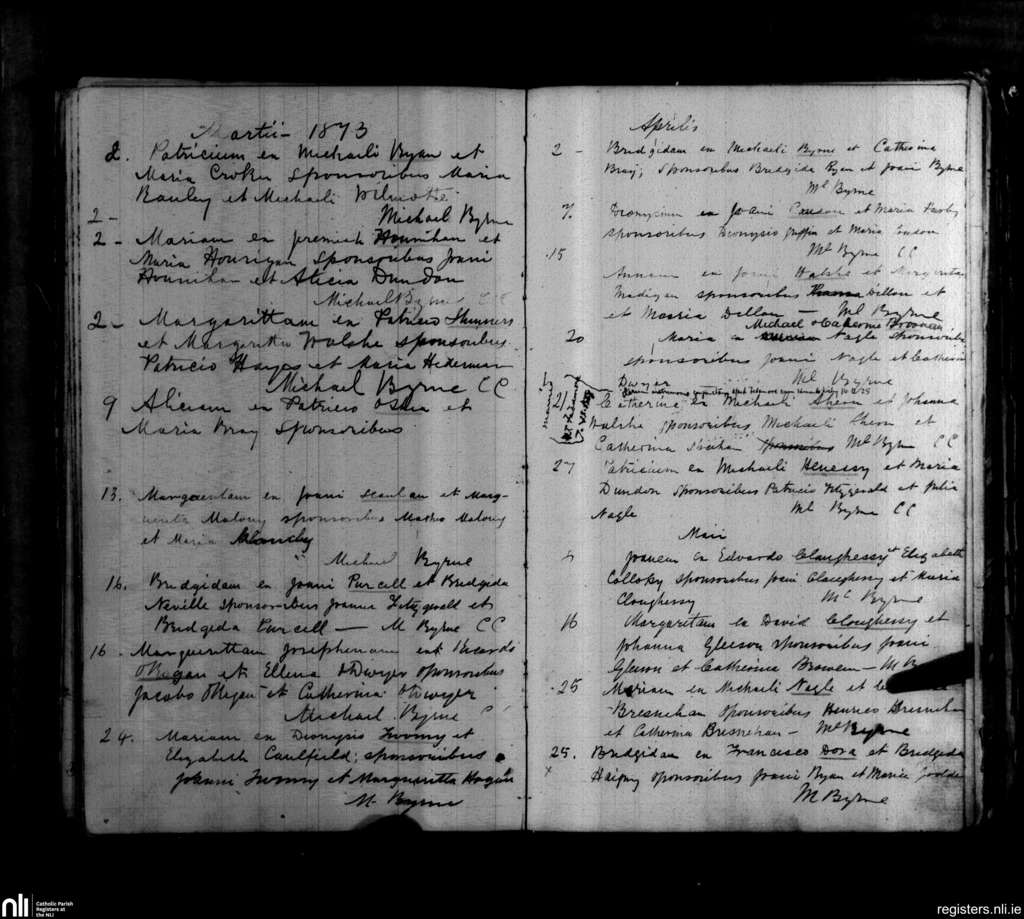 Martii - 1873
2. Patricium ex Michaeli Ryan et
Maria Croker sponsoribus Maria
et Michaeli
Michael Byrne
2 -
2 - Mariam ex Jeremiah Hourihan et
Maria Hourigan sponsoribus Joani
Hourihan et Alicia Dundon
Michael Byrne CC
2 - Margarittam ex Patricio Skinners
et Margaritta Walshe sponsoribus
Patricio Hayes et Maria Hederman
Michael Byrne CC
9 Aliciam ex Patricio OShea et
Maria Bray sponsoribus
13. Margaritam ex Joani Scanlan et Marg-
uerita Malony sponsoribus Malony
et Maria
Michael Byrne
16. Bridgidam ex Joani Purcell et Bridgida
Neville sponsoribus Joanna Fitzgerald et
Bridgeda Purcell — M Byrne CC
16. Marguerittam Josephinam ex Ricardo
ORegan et Ellena ODwyer sponsoribus
Jacobo ORegan et Catherina ODwyer
Michael Byrne
24. Mariam ex Dionysio Twomy et
Elizabeth Caulfield; sponsoribus
Johanni Twomy et Margueritta Hogan
M. Byrne
Aprilis
2 - Bridgidam ex Michaeli Byrne et Catherina
Bray; Sponsoribus Bridgida Ryan et Joani Byrne
Ml Byrne
7. Dionysium ex Joani et Maria
sponsoribus Dionysio Griffin et Maria
Ml Byrne CC
15
Annam ex Joani Walshe et Margarita
Madigan sponsoribus Dillon et
et Maria Dillon — Ml Byrne
Michael + Catherine Brosnan
20 Maria ex Nagle sponsoribus
sponsoribus Joani Nagle et Catherina
Dwyer Ml Byrne
21 Catherina ex Michaeli Sheen et Johanna
Walsh sponsoribus Michaeli Sheen et
Catherina Sheehan sponsoribus Ml Byrne CC
27 Patricium ex Michaeli Henessy et Maria
Dundon Sponsoribus Patricio Fitzgerald et Julia
Nagle Ml Byrne CC
Maii
Joanem ex Edvardo Cloughessy et Elizabeth
Collopy sponsoribus Joani Cloughessy et Maria
Cloughessy Ml Byrne
16 Margaretam ex David Cloughessy et
Johanna Gleeson sponsoribus Joani
Gleeson et Catherina —
25 Mariam ex Michaeli Nagle et
Bresnehan sponsoribus Bresnihan
et Catherina Bresnehan — Ml Byrne
25. Bridgidam ex Francisco Dora et Bridgeda
x sponsoribus Joani Ryan et Maria
M Byrne
nli
Catholic Parish
Registers at
the NLI
registers.nli.ie